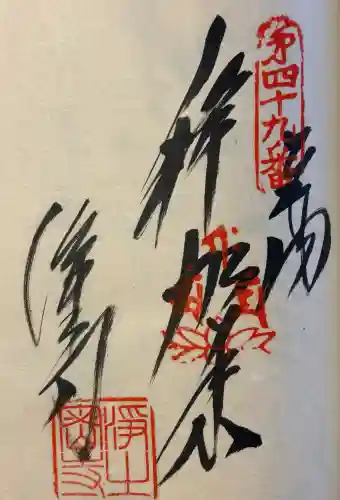 第四十九番
奉納
釋迦如来
浄土寺
淨土